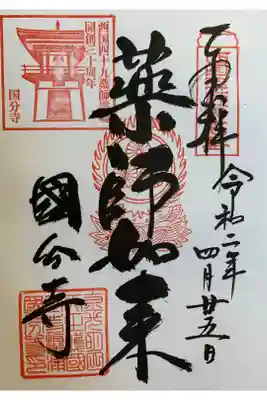 奉拝
令和二年
四月廿五日
藥師如来
國分寺
西国四十九薬師
開創三十周年
国分寺